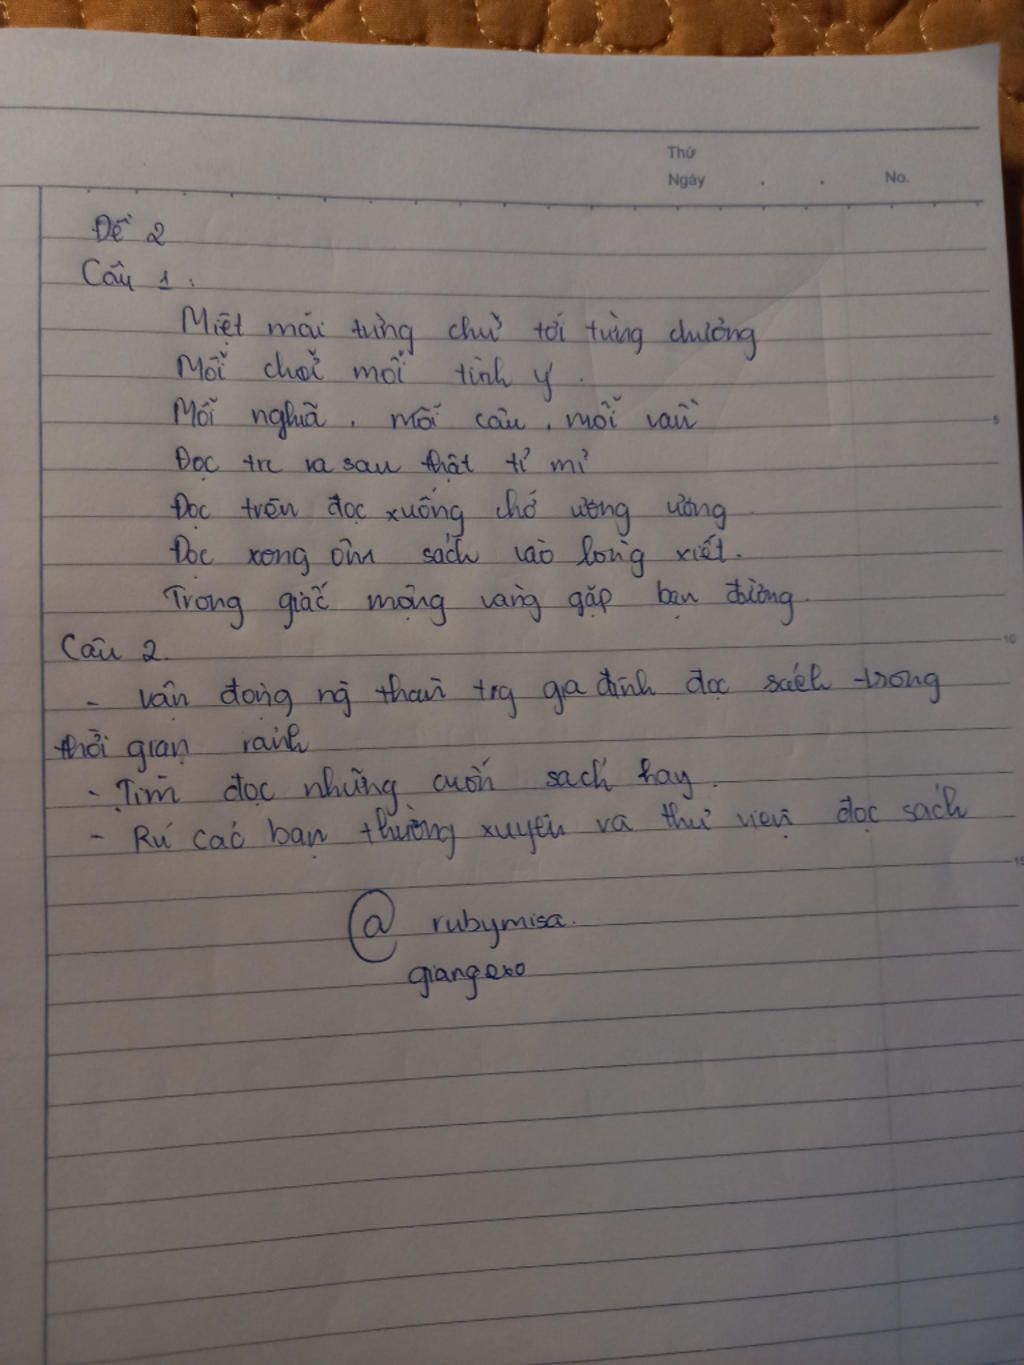 Thứ
Ngày . . No.
Đề 2
Câu 1 :
Miệt mài từng chữ tới từng chương
Mỗi chơi mỗi tình ý .
Mỗi nghĩa , mỗi câu , mỗi vần
Đọc trc ra sau thật tỉ mỉ
Đọc trên đọc xuống chớ ương ương
Đọc xong ôm sách vào lòng xiết.
Trong giấc mộng vàng gặp bạn đường.
Câu 2.
- vận động ng thân trg gia đình đọc sách trong
thời gian rảnh
- Tìm đọc những cuốn sách hay .
- Rủ các bạn thường xuyên va thư viện đọc sách
@ rubymisa.
giangexo
5
10
15